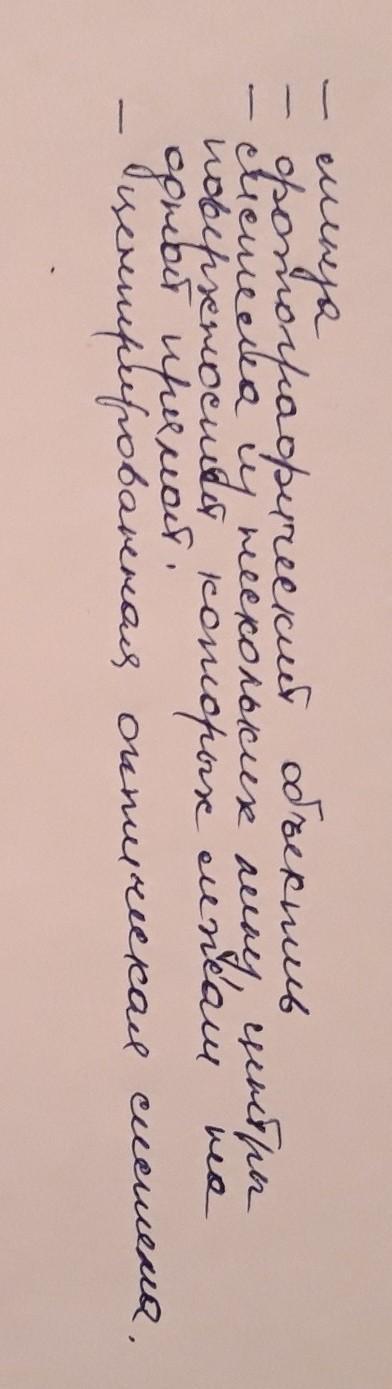 — линза
— фотографический объектив
— система из нескольких линз, центры
поверхностей которых лежат на
одной прямой.
— центрированная оптическая система.